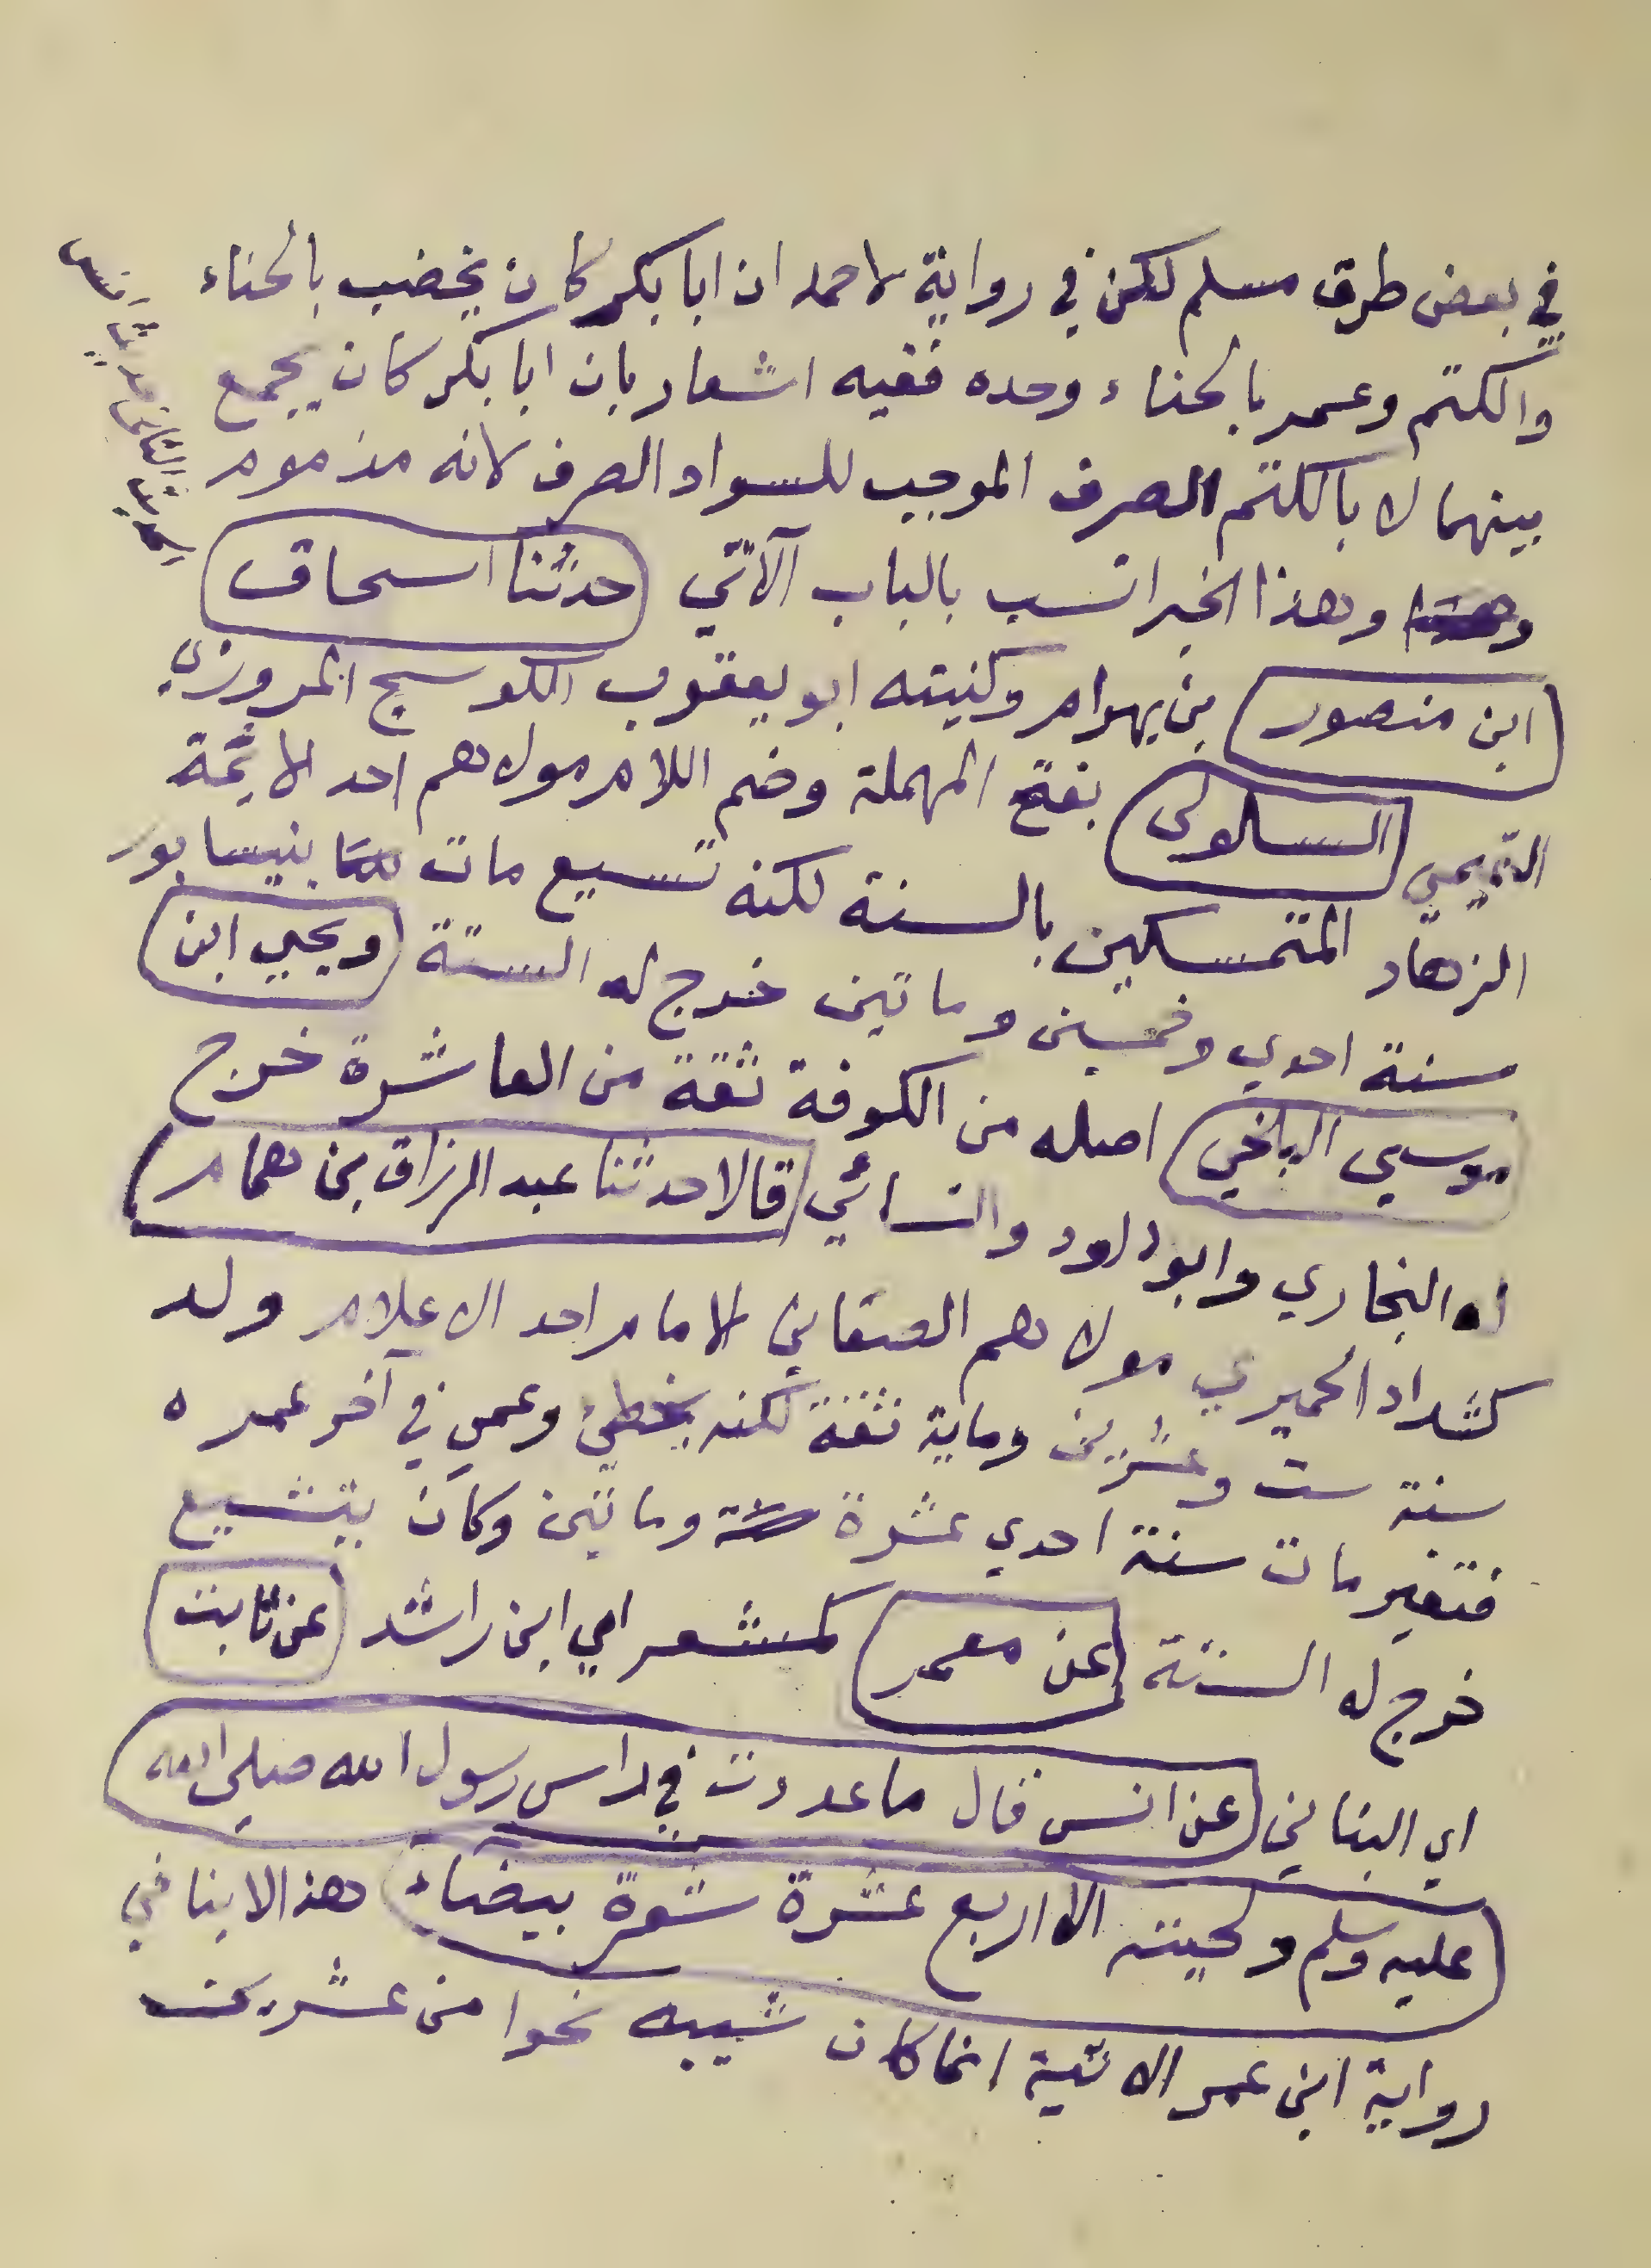 في بعض طرق مسلم لكن في رواية لاحمد ان ابا بكر كان يخضب بالحناء
والكتم وعمر بالحناء وحده ففيه اشعار بان ابا بكر كان يجمع
بينهما لا بالكتم الصرف الموجب للسواد الصرف لانه مذموم
وهذا الخبر انسب بالباب الآتي حدثنا اسحاق
ابن منصور بن بهرام وكنيته ابو يعقوب الكوسج المروزي
التميمي السلولى بفتح المهملة وضم اللام مولاهم احد الايمة
الزهاد المتمسكين بالسنة لكنه تسيع مات بنيسابور
سنة احدي وخمسين وماتين خرج له الستة ويحيي ابن
موسي البلخي اصله من الكوفة ثقة من العاشرة خرج
له البخاري وابو داود والنسائي قالا حدثنا عبد الرزاق بن همام
كشداد الحميري مولاهم الصنعاني الامام احد الاعلام ولد
سنة ست وعشرين وماية ثقة لكنه يخطئ وعمي في آخر عمره
فتغير مات سنة احدي عشرة وماتين وكان يتشيع
خرج له الستة عن معمر كمشعر اي ابن راشد عن ثابت
اي البناني عن انس قال ما عددت في راس رسول الله صلي الله
عليه وسلم ولحيته الا اربع عشرة شعرة بيضاء هذا لا ينافي
رواية ابن عمر الاتية انما كان شيبه نحوا من عشرين
الحديث الثاني حديث انس